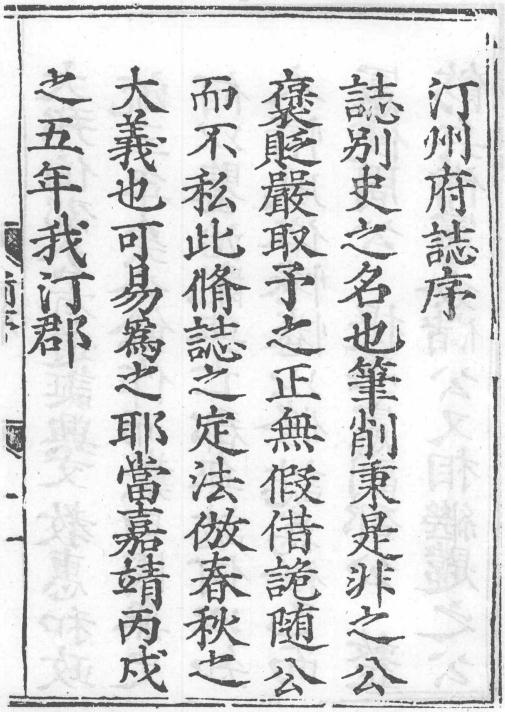 汀州府誌序
誌别史之名也筆削秉是非之公
褒貶嚴取予之正無假借詭随公
而不私此脩誌之定法倣春秋之
大義也可易爲之耶當嘉靖丙戌
之五年我汀郡